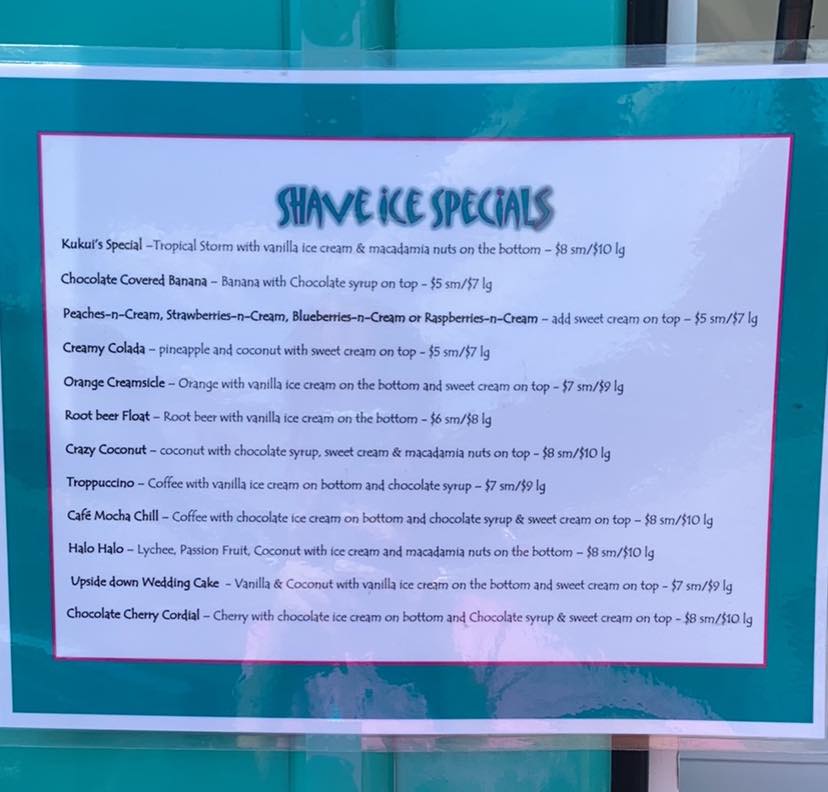 SHAVE ICE SPECIALS
Kukui's Special –Tropical Storm with vanilla ice cream & macadamia nuts on the bottom – $8 sm/$10 lg
Chocolate Covered Banana – Banana with Chocolate syrup on top - $5 sm/$7 lg
Peaches-n-Cream, Strawberries-n-Cream, Blueberries-n-Cream or Raspberries-n-Cream – add sweet cream on top – $5 sm/$7 lg
Creamy Colada – pineapple and coconut with sweet cream on top - $5 sm/$7 lg
Orange Creamsicle – Orange with vanilla ice cream on the bottom and sweet cream on top - $7 sm/$9 lg
Root beer Float – Root beer with vanilla ice cream on the bottom - $6 sm/$8 lg
Crazy Coconut – coconut with chocolate syrup, sweet cream & macadamia nuts on top - $8 sm/$10 lg
Troppuccino – Coffee with vanilla ice cream on bottom and chocolate syrup – $7 sm/$9 lg
Café Mocha Chill – Coffee with chocolate ice cream on bottom and chocolate syrup & sweet cream on top – $8 sm/$10 lg
Halo Halo – Lychee, Passion Fruit, Coconut with ice cream and macadamia nuts on the bottom – $8 sm/$10 lg
Upside down Wedding Cake - Vanilla & Coconut with vanilla ice cream on the bottom and sweet cream on top - $7 sm/$9 lg
Chocolate Cherry Cordial – Cherry with chocolate ice cream on bottom and Chocolate syrup & sweet cream on top - $8 sm/$10 lg